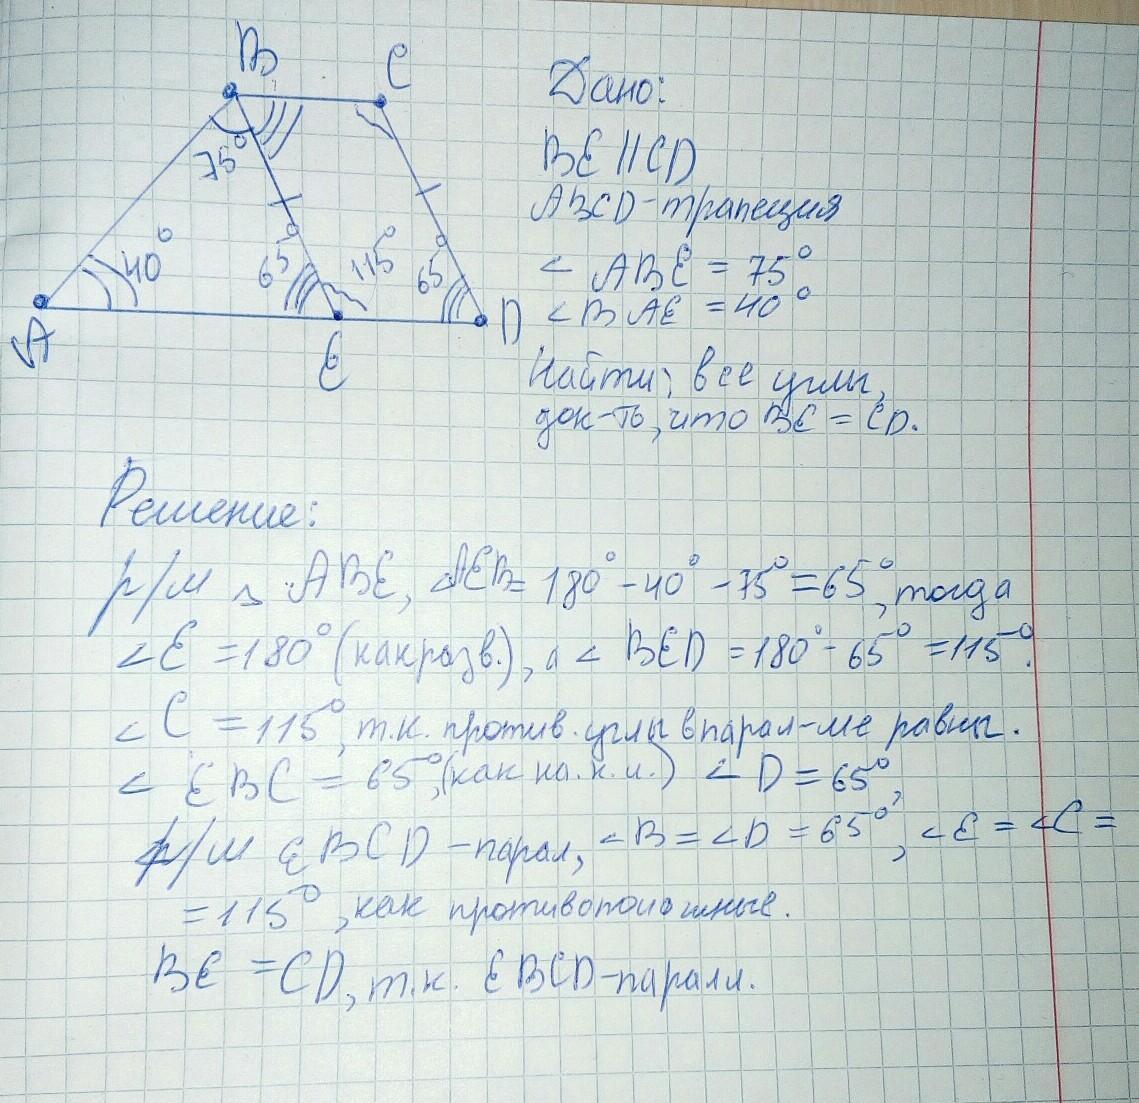 B C
75°
40° 65° 115° 65°
A E D
Дано:
BE || CD
ABCD - трапеция
∠ ABE = 75°
∠ BAE = 40°
Найти: все углы,
док-ть, что BE = CD.
Решение:
р/м △ ABE, ∠AEB = 180° - 40° - 75° = 65°, тогда
∠E = 180° (как разв.), а ∠ BED = 180° - 65° = 115°.
∠ C = 115°, т.к. против. углы в парал-ме равны.
∠ EBC = 65°, (как на.к.и.) ∠ D = 65°,
р/м EBCD - парал, ∠B = ∠D = 65°, ∠E = ∠C =
= 115°, как противоположные.
BE = CD, т.к. EBCD - паралл.